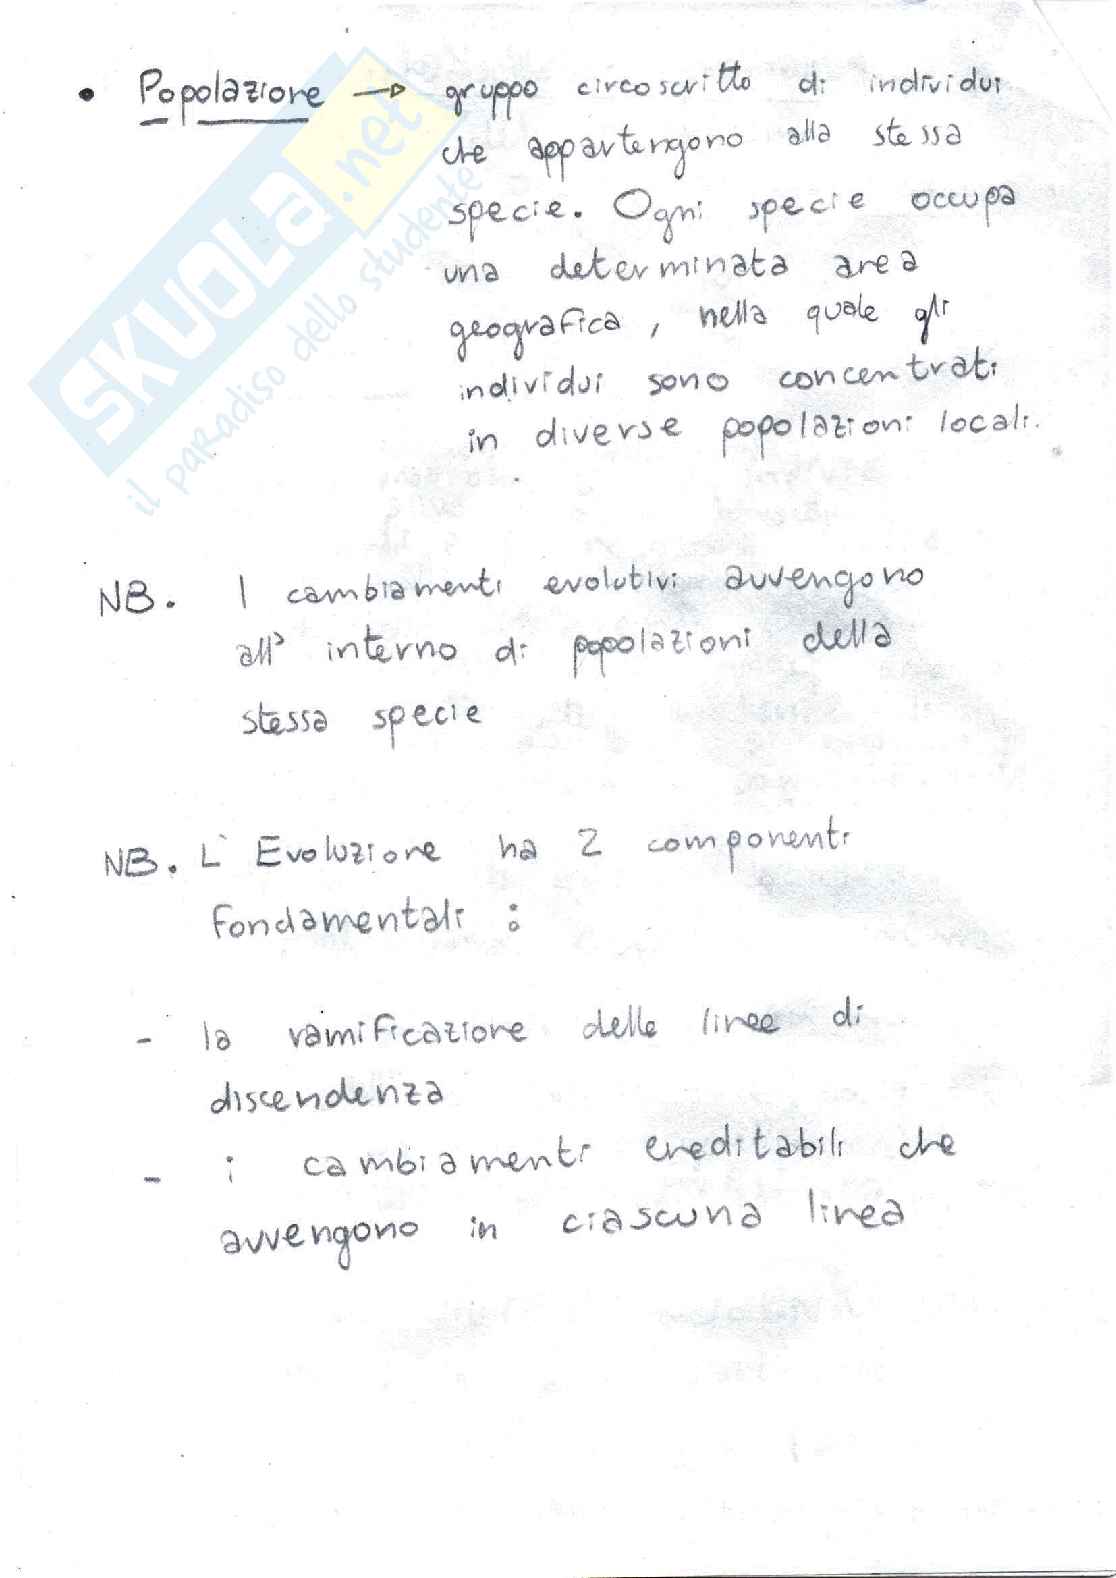 • Popolazione → gruppo circoscritto di individui
che appartengono alla stessa
specie. Ogni specie occupa
una determinata area
geografica, nella quale gli
individui sono concentrati
in diverse popolazioni locali.
SKUOLA.net
il paradiso dello studente
NB. I cambiamenti evolutivi avvengono
all' interno di popolazioni della
stessa specie
NB. L' Evoluzione ha 2 componenti
fondamentali :
- la ramificazione delle linee di
discendenza
- i cambiamenti ereditabili che
avvengono in ciascuna linea